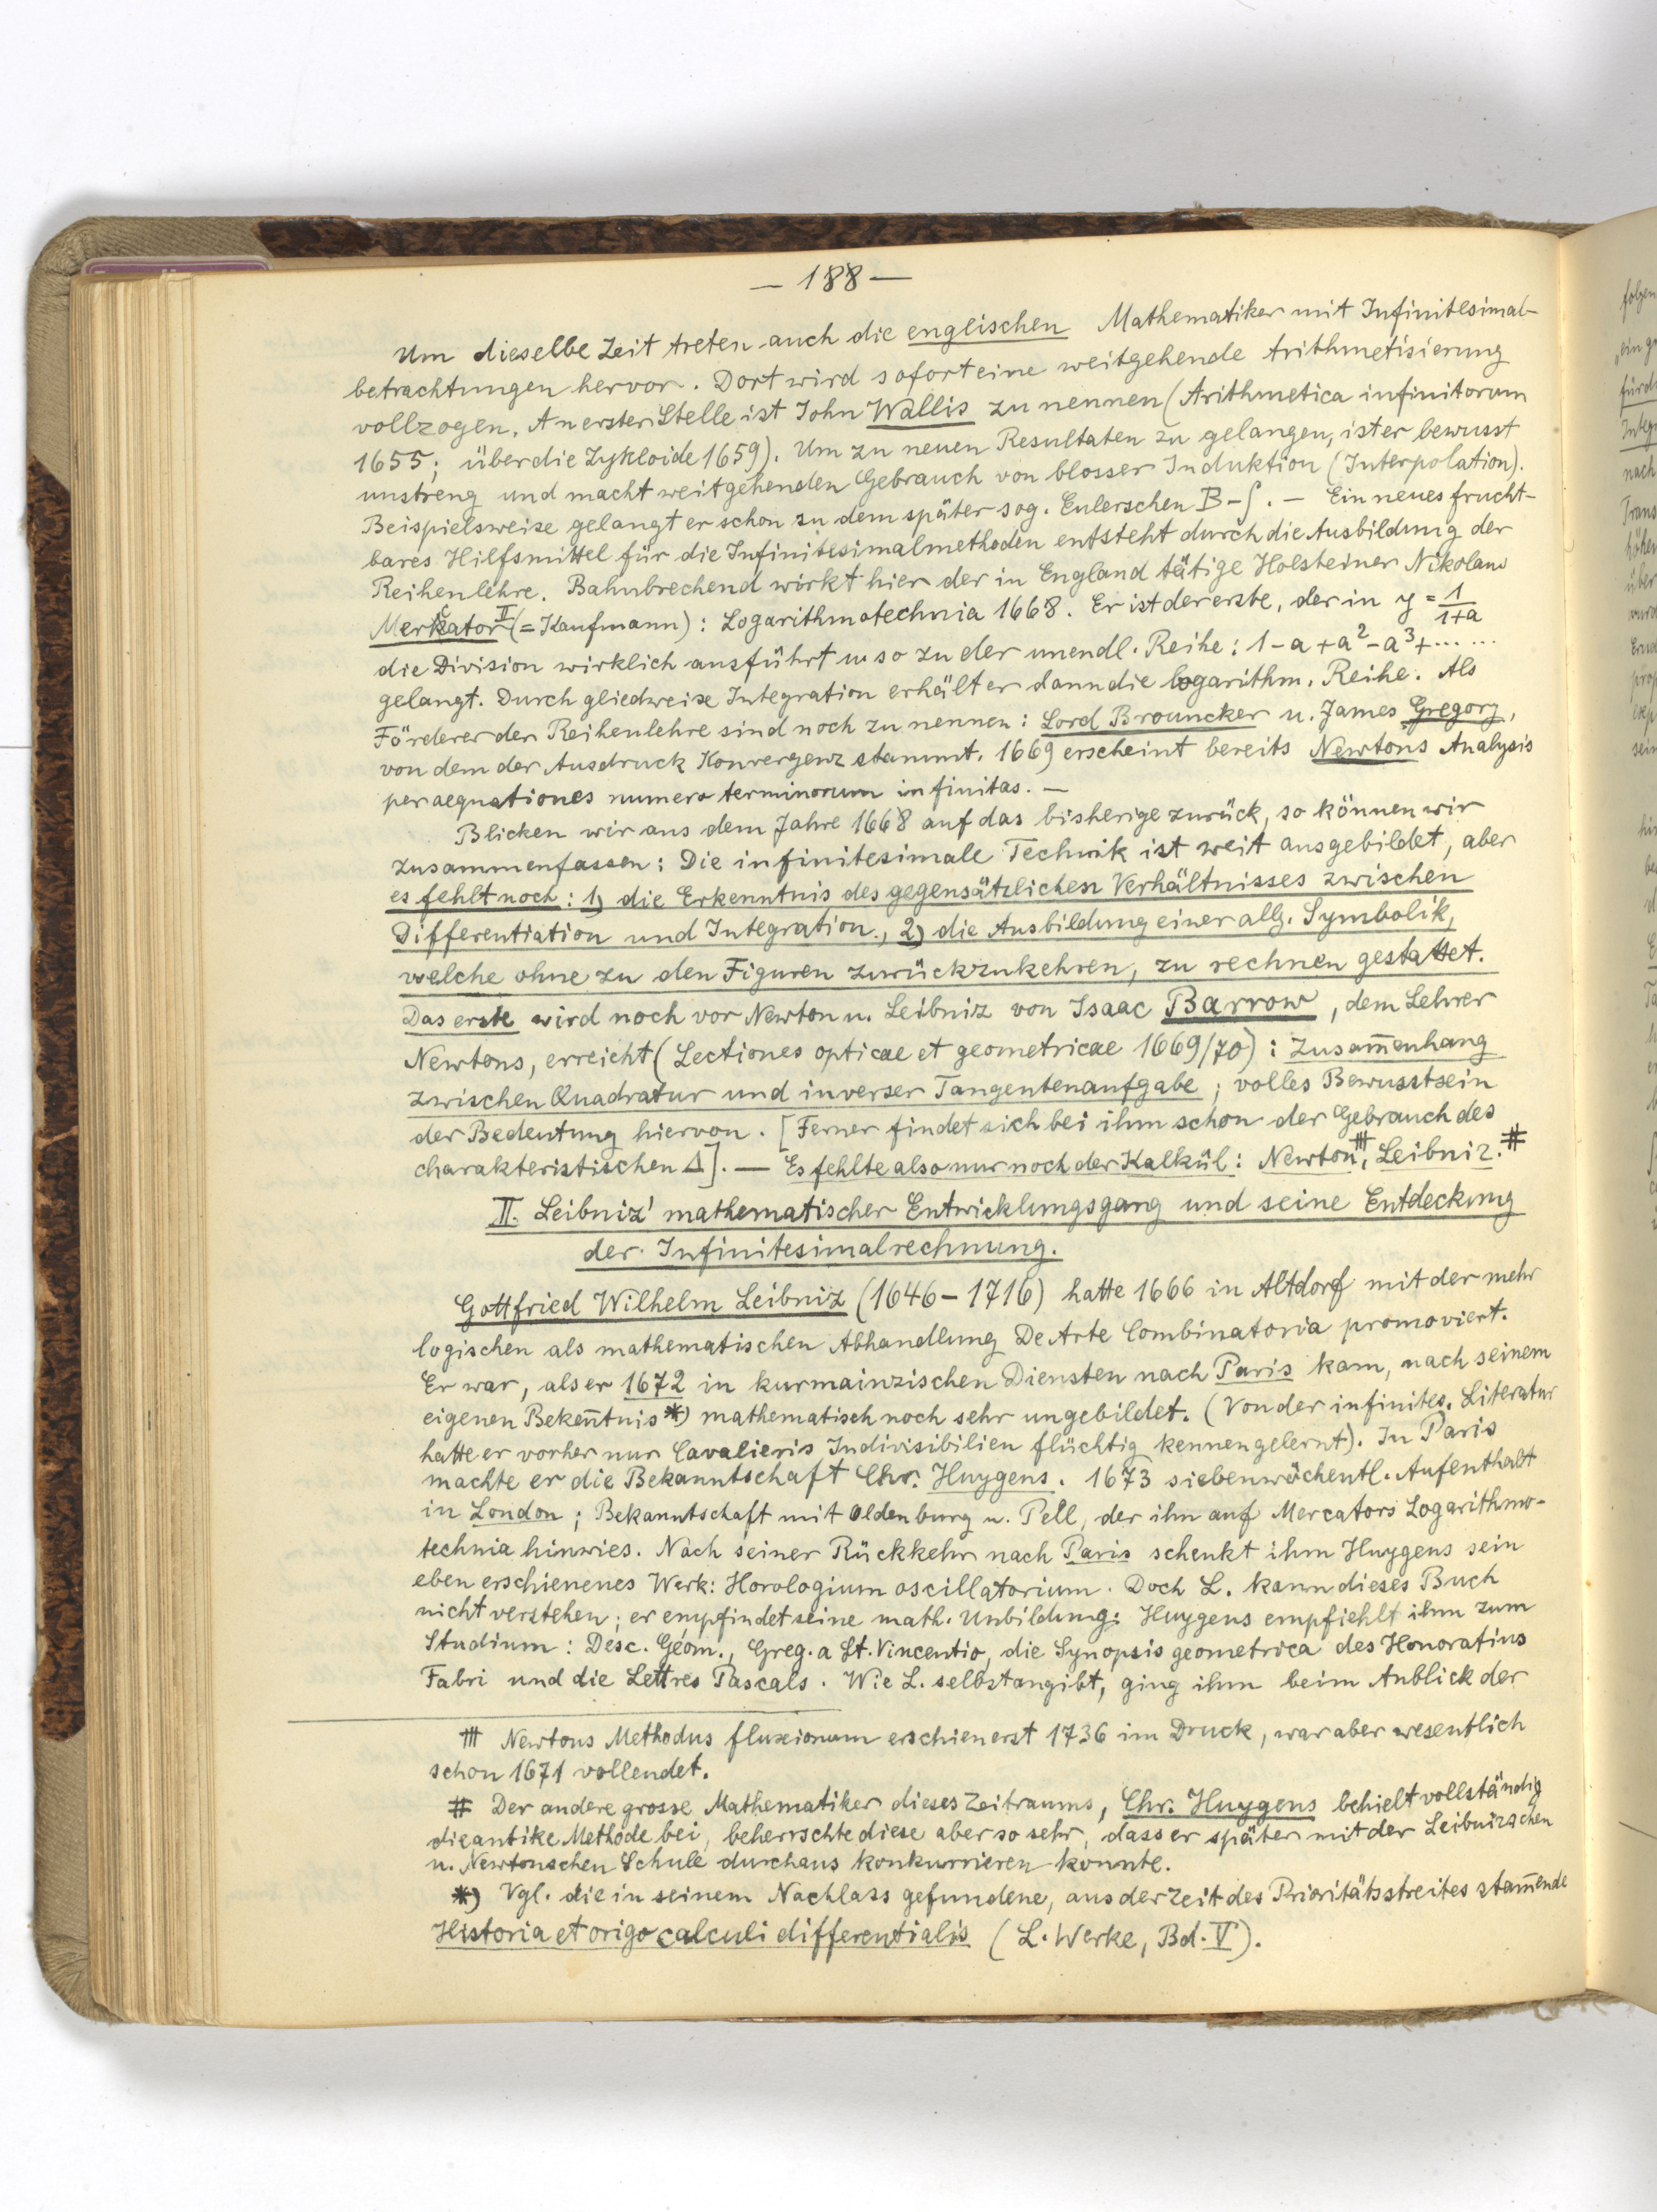 — 188 —
Um dieselbe Zeit treten auch die englischen Mathematiker mit Infinitesimal-
betrachtungen hervor. Dort wird sofort eine weitgehende Arithmetisierung
vollzogen. An erster Stelle ist John Wallis zu nennen (Arithmetica infinitorum
1655; über die Zykloide 1659). Um zu neuen Resultaten zu gelangen, ist er bewusst
unstreng und macht weitgehenden Gebrauch von blosser Induktion (Interpolation).
Beispielsweise gelangt er schon zu dem später sog. Eulerschen B-∫. — Ein neues frucht-
bares Hilfsmittel für die Infinitesimalmethoden entsteht durch die Ausbildung der
Reihenlehre. Bahnbrechend wirkt hier der in England tätige Holsteiner Nikolaus
Merkator II (= Kaufmann): Logarithmotechnia 1668. Er ist der erste, der in y = 1/(1+a)
die Division wirklich ausführt u. so zu der unendl. Reihe: 1 - a + a² - a³ + ... ...
gelangt. Durch gliedweise Integration erhält er dann die logarithm. Reihe. Als
Förderer der Reihenlehre sind noch zu nennen: Lord Brouncker u. James Gregory,
von dem der Ausdruck Konvergenz stammt. 1669 erscheint bereits Newtons Analysis
per aequationes numero terminorum infinitas. —
Blicken wir aus dem Jahre 1668 auf das bisherige zurück, so können wir
zusammenfassen: Die infinitesimale Technik ist weit ausgebildet, aber
es fehlt noch: 1) die Erkenntnis des gegensätzlichen Verhältnisses zwischen
Differentiation und Integration., 2) die Ausbildung einer allg. Symbolik,
welche ohne zu den Figuren zurückzukehren, zu rechnen gestattet.
Das erste wird noch vor Newton u. Leibniz von Isaac Barrow, dem Lehrer
Newtons, erreicht (Lectiones opticae et geometricae 1669/70): Zusam̅enhang
zwischen Quadratur und inverser Tangentenaufgabe; volles Bewusstsein
der Bedeutung hiervon. [Ferner findet sich bei ihm schon der Gebrauch des
charakteristischen Δ]. — Es fehlte also nur noch der Kalkül: Newton⧻, Leibniz.#
II. Leibniz' mathematischer Entwicklungsgang und seine Entdeckung
der Infinitesimalrechnung.
Gottfried Wilhelm Leibniz (1646–1716) hatte 1666 in Altdorf mit der mehr
logischen als mathematischen Abhandlung De Arte Combinatoria promoviert.
Er war, als er 1672 in kurmainzischen Diensten nach Paris kam, nach seinem
eigenen Beken̅tnis *) mathematisch noch sehr ungebildet. (Von der infinites. Literatur
hatte er vorher nur Cavalieris Indivisibilien flüchtig kennengelernt). In Paris
machte er die Bekanntschaft Chr. Huygens. 1673 siebenwöchentl. Aufenthalt
in London; Bekanntschaft mit Oldenburg u. Pell, der ihn auf Mercators Logarithmo-
technia hinwies. Nach seiner Rückkehr nach Paris schenkt ihm Huygens sein
eben erschienenes Werk: Horologium oscillatorium. Doch L. kann dieses Buch
nicht verstehen; er empfindet seine math. Unbildung. Huygens empfiehlt ihm zum
Studium: Desc. Géom., Greg. a St. Vincentio, die Synopsis geometrica des Honoratius
Fabri und die Lettres Pascals. Wie L. selbst angibt, ging ihm beim Anblick der
⧻ Newtons Methodus fluxionum erschien erst 1736 im Druck, war aber wesentlich
schon 1671 vollendet.
# Der andere grosse Mathematiker dieses Zeitraums, Chr. Huygens behielt vollständig
die antike Methode bei, beherrschte diese aber so sehr, dass er später mit der Leibnizschen
u. Newtonschen Schule durchaus konkurrieren konnte.
*) Vgl. die in seinem Nachlass gefundene, aus der Zeit des Prioritätsstreites stam̅ende
Historia et origo calculi differentialis (L. Werke, Bd. V).